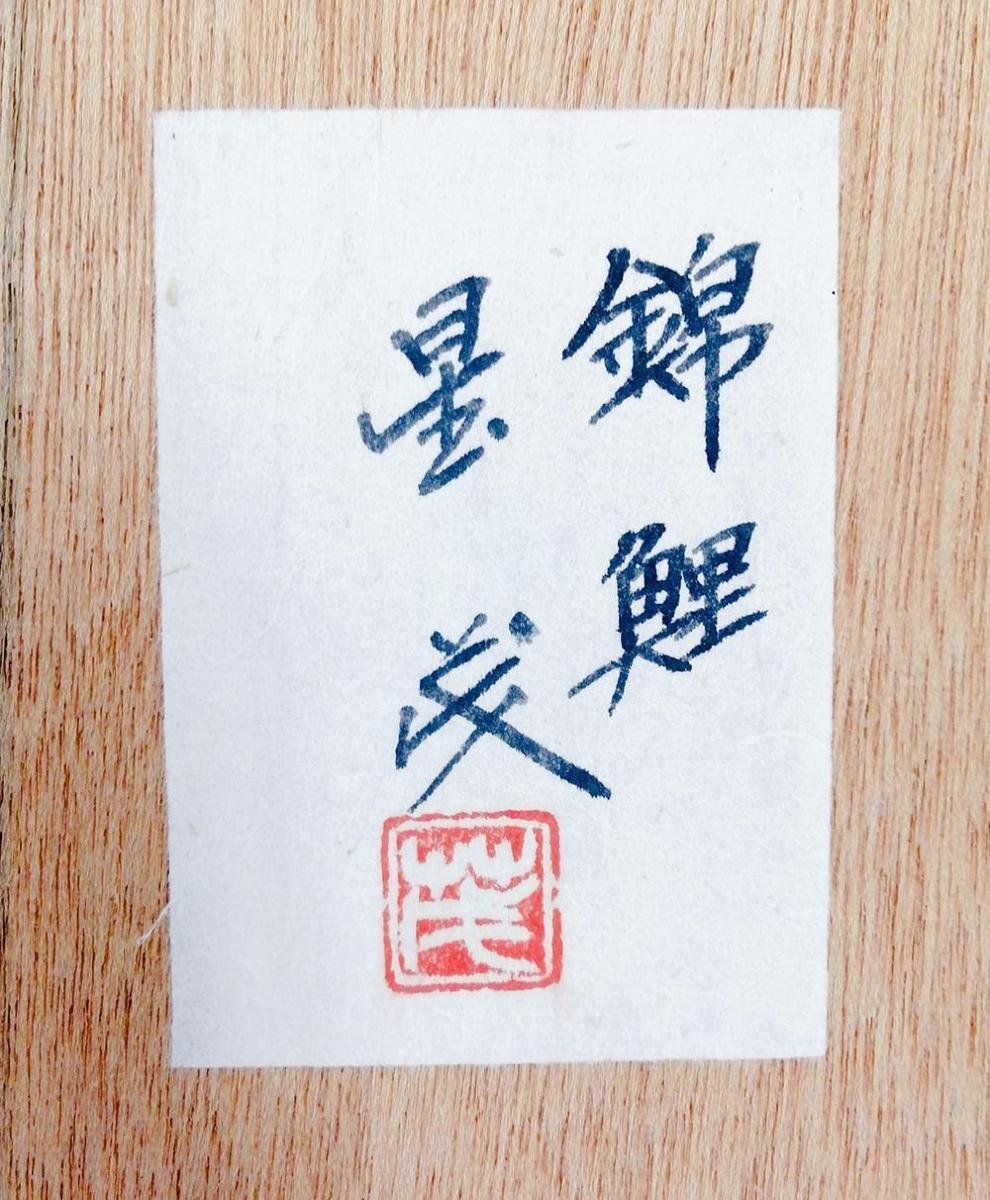 錦鯉
星茂
茂